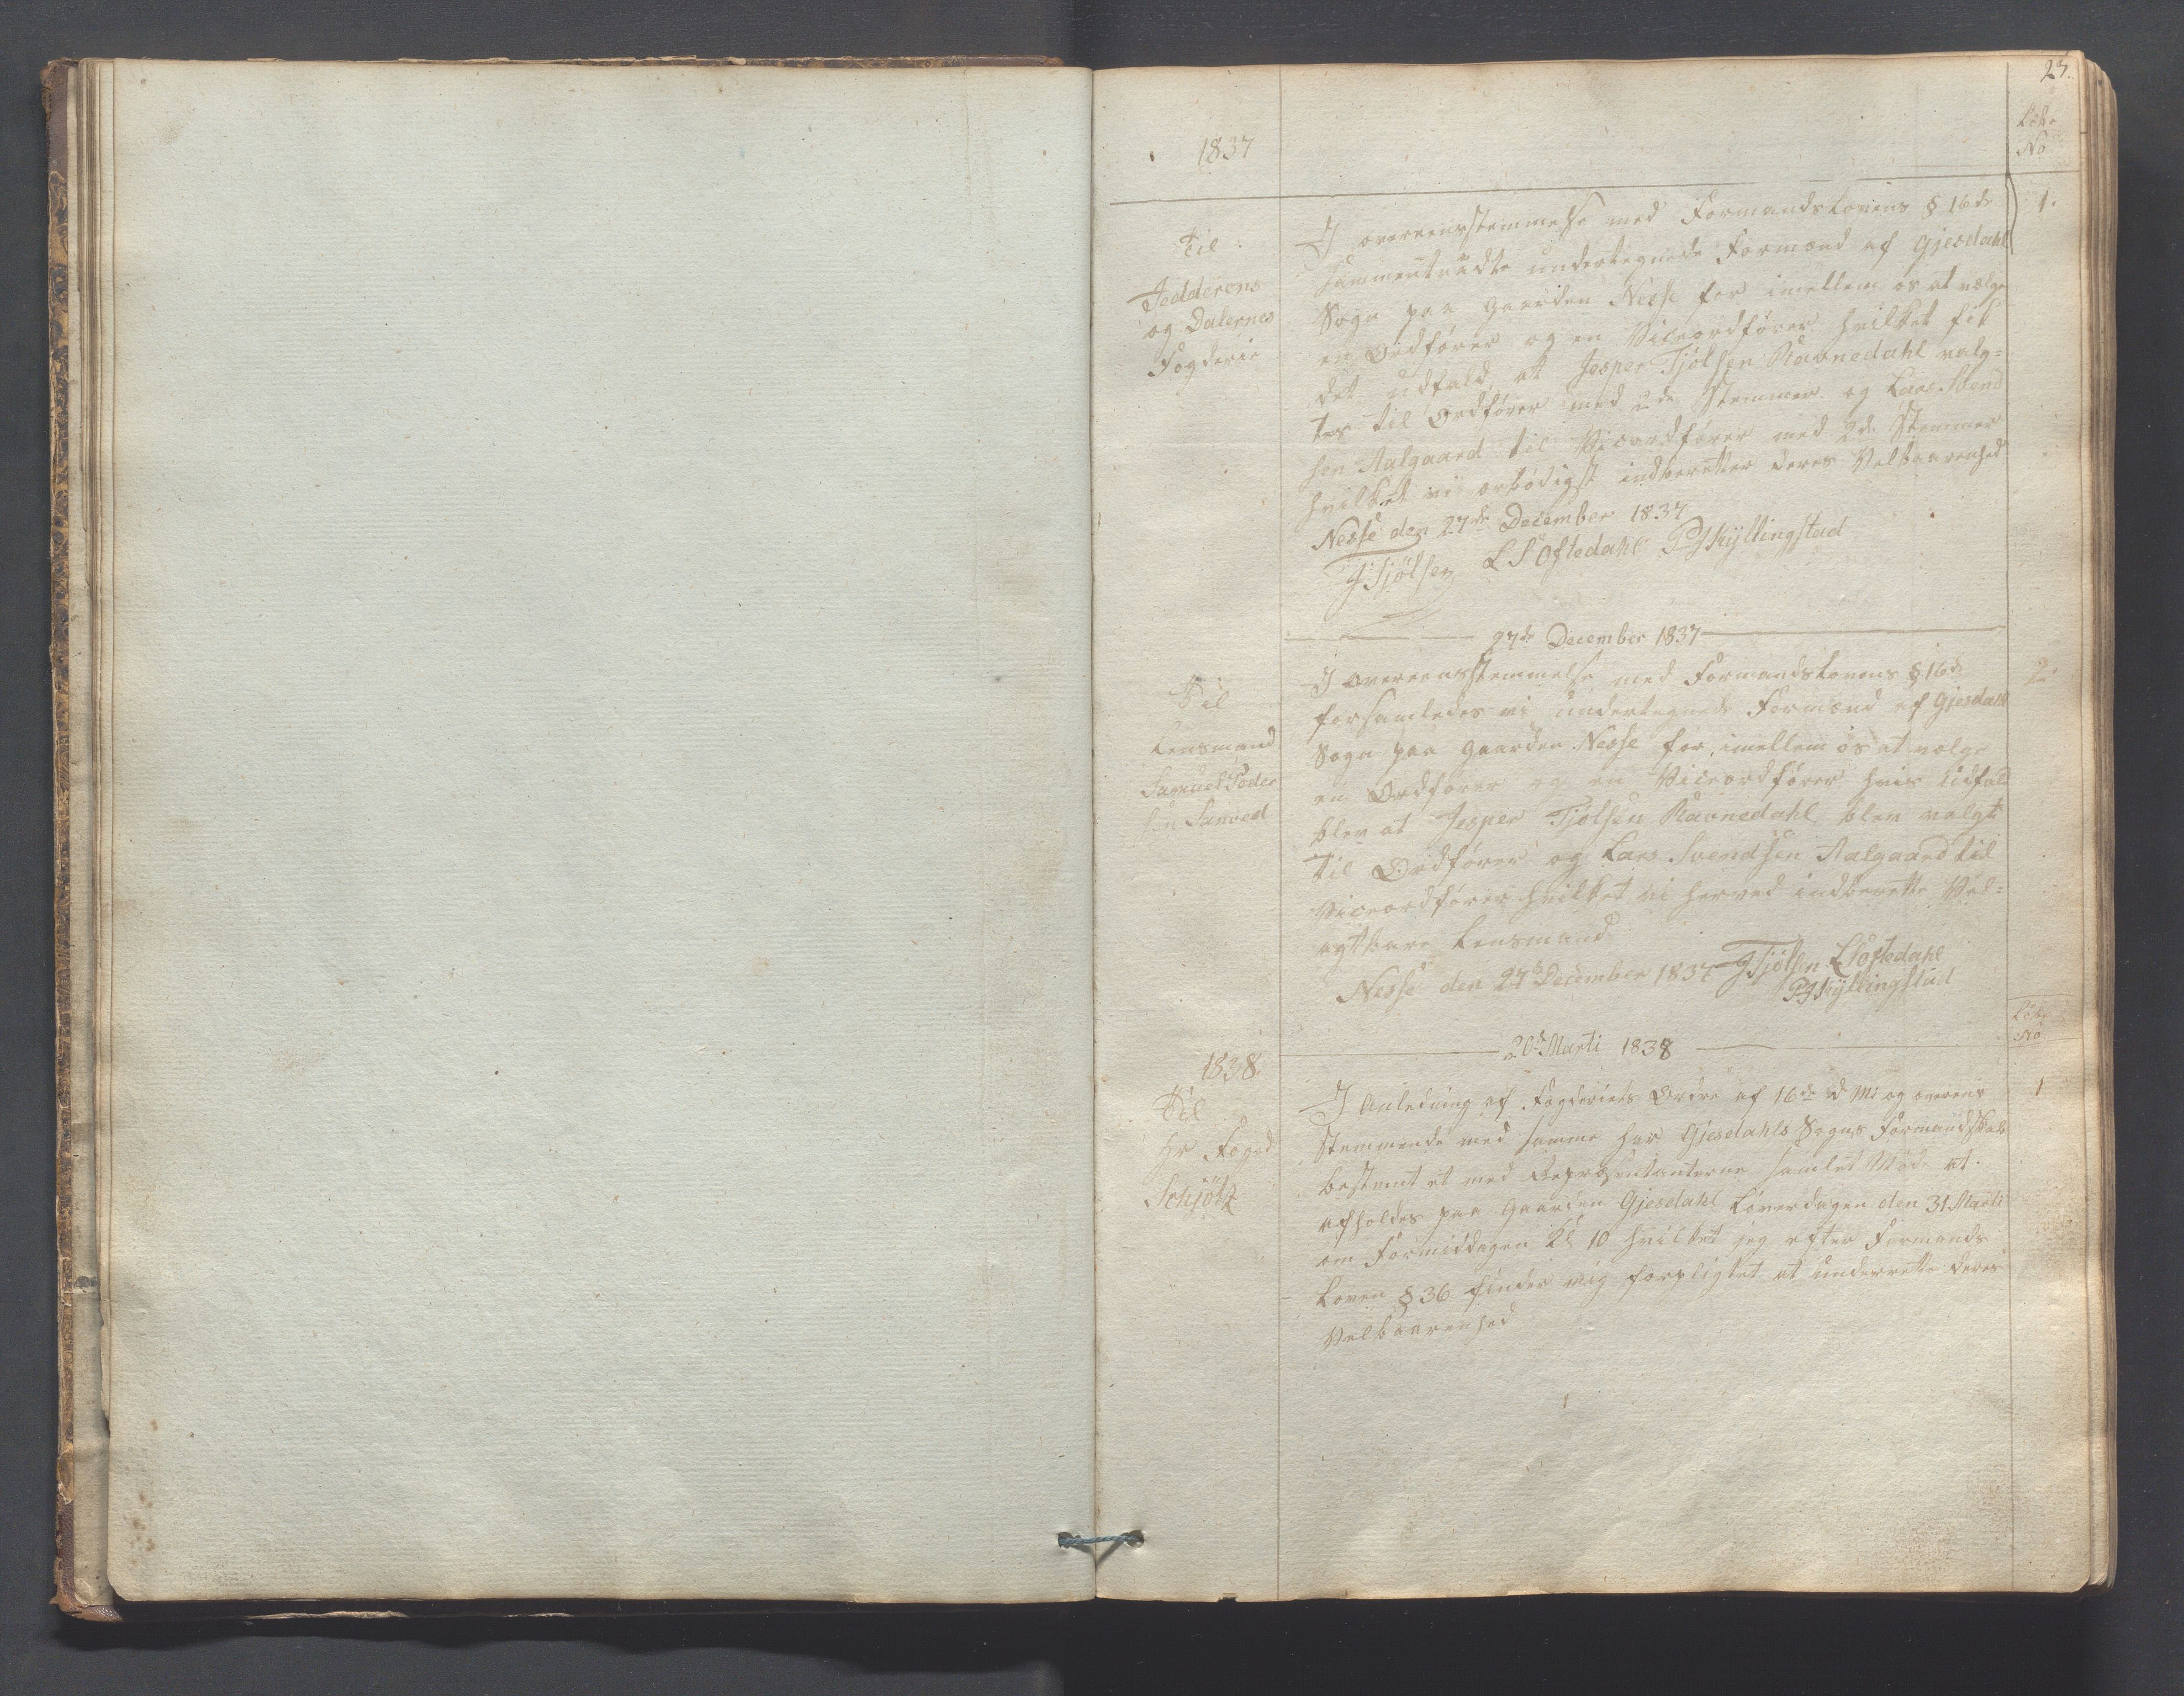 23.
1837
Løbe
No
Til
Jedderens
og Dalernes
Fogderie
I overeensstemmelse med Formandslovens § 16de
sammentraadte undertegnede Formænd af Gjesdahl
Sogn paa Gaarden Nesse for imellem os at vælge
en Ordfører og en Viceordfører hvilket fik
det udfald at Jesper Tjølsen Ravnedahl valg=
tes til Ordfører med 2de Stemmer og Lars Svend
sen Aalgaard til Viceordfører med 2de Stemmer
hvilket vi ærbødigst indberetter deres Velbaarenhed
Nesse den 27de December 1837
JTjølsen LSOftedahl PJKyllingstad
1.
27de December 1837
Til
Lensmand
Samuel Peder
sen Sanved
I Overeensstemmelse med Formandslovens § 16de
forsamledes vi undertegnede Formænd af Gjesdahl
Sogn paa Gaarden Nesse for imellem os at vælge
en Ordfører og en Viceordfører hvis Udfald
blev at Jesper Tjølsen Ravnedahl blev valgt
til Ordfører og Lars Svendsen Aalgaard til
Viceordfører hvilket vi herved indberette Vel=
agtbare Lensmand
Nesse den 27de December 1837 JTjølsen LSOftedahl
PJKyllingstad
2.
Løbe
No
20de Marti 1838
1838
Til
Hr Foged
Schjøtz
I Anledning af Fogderiets Ordre af 16de d M: og overens
stemmende med samme har Gjesdahls Sogns Formandskab
bestemt et med Repræsentanterne samlet Møde at
afholdes paa Gaarden Gjesdahl Løverdagen den 31 Marti
om Formiddagen Kl 10 hvilket jeg efter Formands
Loven § 36 finder mig forpligtet at underrette deres
Velbaarenhed
1